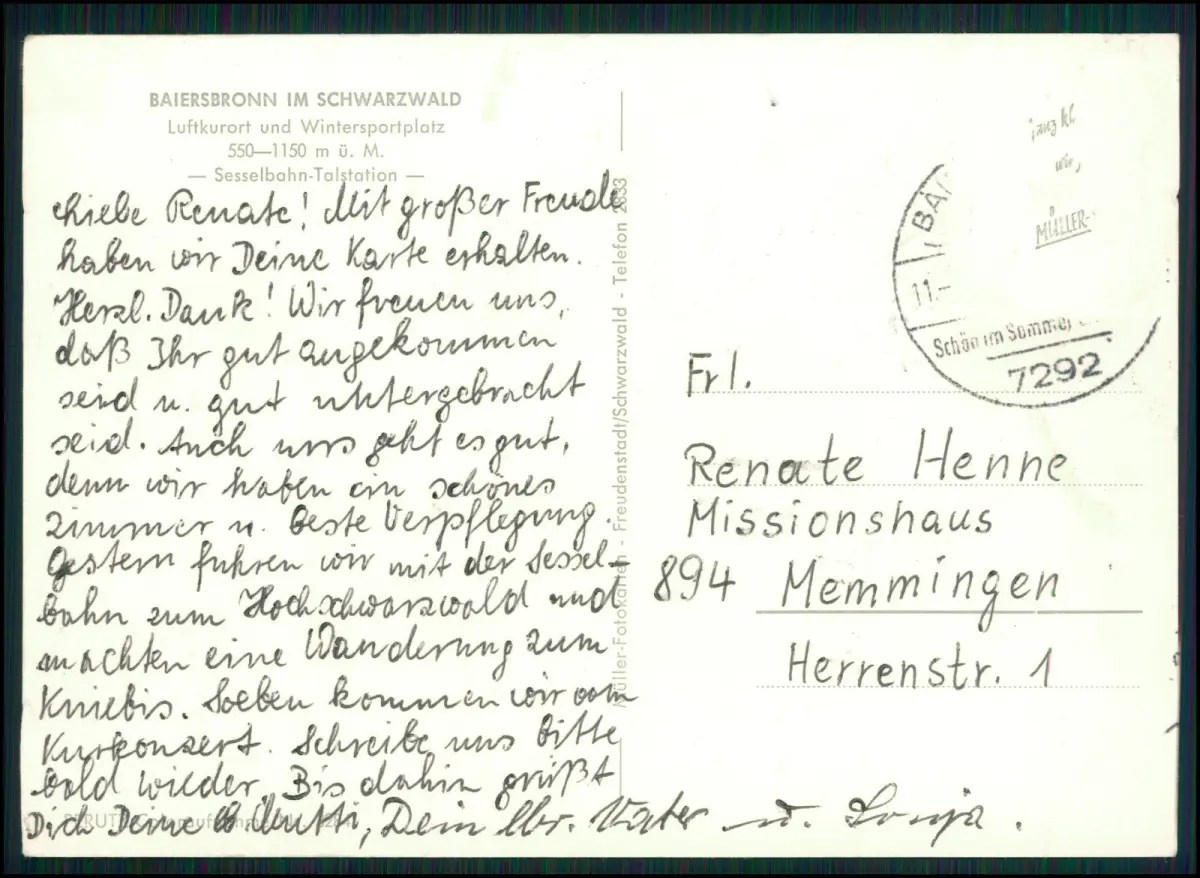 BAIERSBRONN IM SCHWARZWALD
Luftkurort und Wintersportplatz
550—1150 m ü. M.
— Sesselbahn-Talstation —
Liebe Renate! Mit großer Freude
haben wir Deine Karte erhalten.
Herzl. Dank! Wir freuen uns,
daß Ihr gut angekommen
seid u. gut untergebracht
seid. Auch uns geht es gut,
denn wir haben ein schönes
Zimmer u. beste Verpflegung.
Gestern fuhren wir mit der Sessel-
bahn zum Hochschwarzwald und
machten eine Wanderung zum
Kniebis. Soeben kommen wir vom
Kurkonzert. Schreibe uns bitte
bald wieder. Bis dahin grüßt
Dich Deine Mutti, Dein lbr. Vater u. Sonja.
Müller-Fotokarten - Freudenstadt/Schwarzwald - Telefon 2833
ganz kl.
MÜLLER-
BAI
11.-
Schön im Sommer
7292
Frl.
Renate Henne
Missionshaus
894 Memmingen
Herrenstr. 1